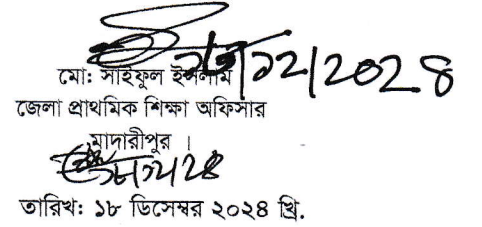 ১৮/১২/২০২৪
মো: সাইফুল ইসলাম
জেলা প্রাথমিক শিক্ষা অফিসার
মাদারীপুর ।
১৮/১২/২৪
তারিখ: ১৮ ডিসেম্বর ২০২৪ খ্রি.